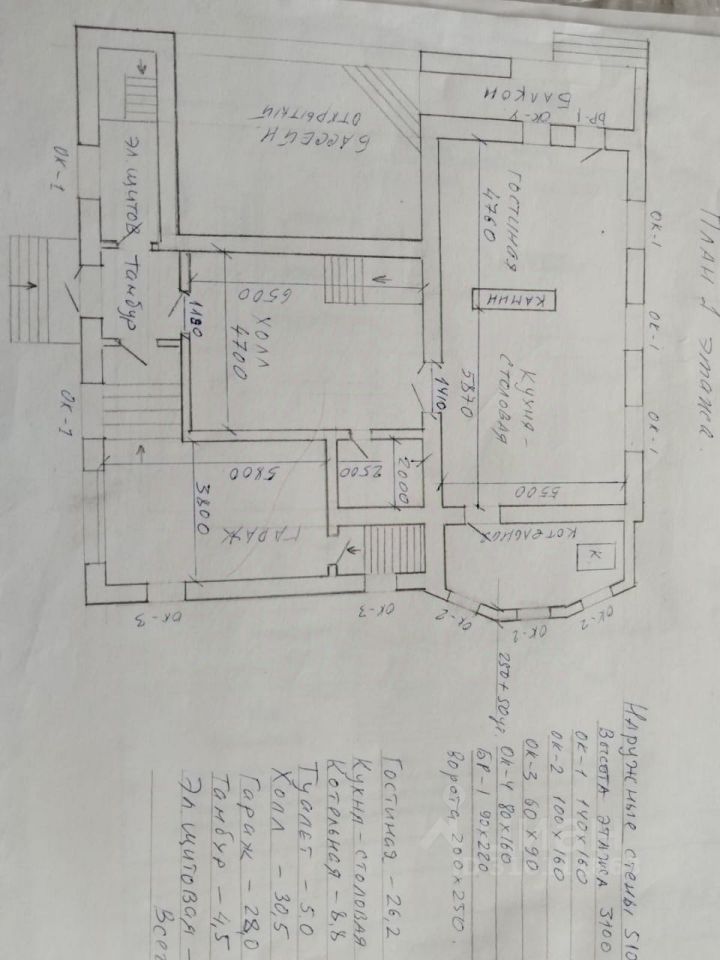 План 1 этажа.
ОК-1
ОК-1
ОК-1
БР-1
ОК-4
Балкон
Гостиная
4760
Камин
Кухня-
столовая
5870
5500
Бассейн
открытый
1410
Котельная
К.
ОК-2
ОК-2
ОК-2
6500
Холл
4700
1180
2500
2000
Эл. щитов
Тамбур
ОК-1
ОК-1
5800
3800
Гараж
ОК-3
ОК-3
Наружные стены 510
250+50ут.
Высота этажа 3100
ОК-1 140х160
ОК-2 100х160
ОК-3 60х90
ОК-4 80х160
БР-1 90х220
Ворота 200х250.
Гостиная – 26,2
Кухня-столовая
Котельная – 8,8
Туалет – 5,0
Холл – 30,5
Гараж – 28,0
Тамбур – 4,5
Эл. щитовая –